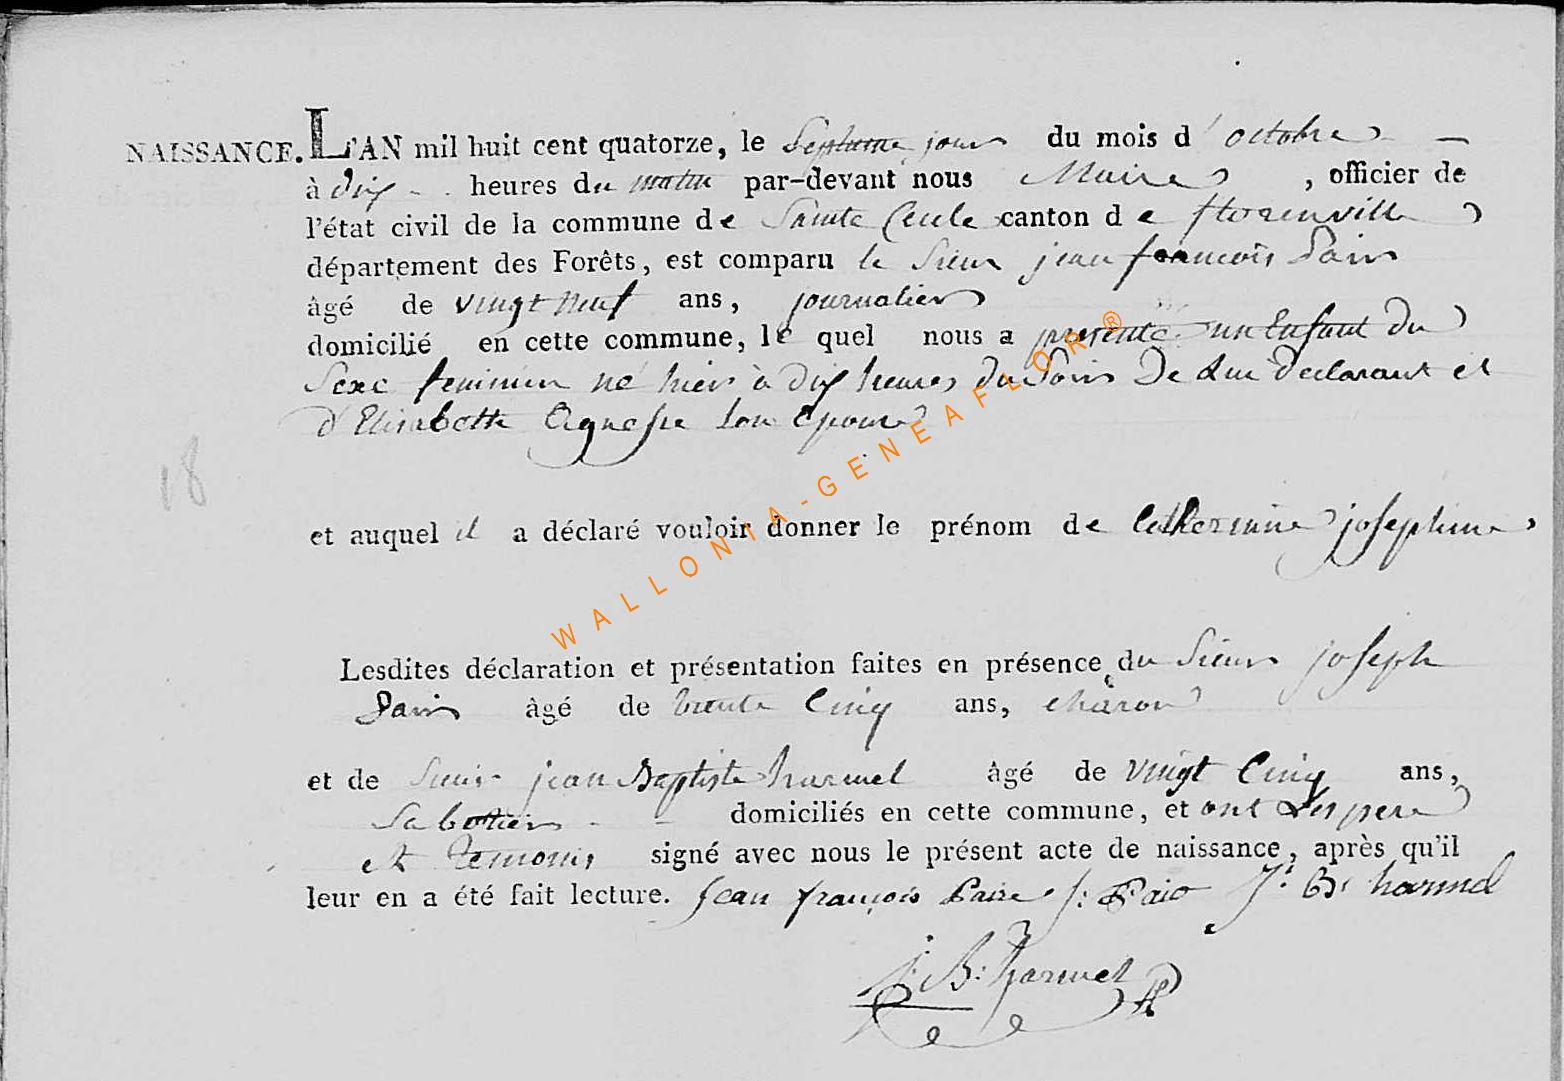 NAISSANCE. L'AN mil huit cent quatorze, le Septieme jour du mois d'octobre
à dix heures du matin par-devant nous Maire, officier de
l'état civil de la commune de Sainte Cecile canton de florenville
département des Forêts, est comparu le Sieur jean françois Pairs
âgé de vingt neuf ans, journalier
domicilié en cette commune, le quel nous a presenté un Enfant du
Sexe feminin né hier à dix heures du Soir De Lui declarant et
d'Elisabette Agnesse Son Epouse
18
et auquel il a déclaré vouloir donner le prénom de Catherinne josephine
Lesdites déclaration et présentation faites en présence du Sieur joseph
âgé de trente Cinq ans, charon
et de Sieur jean Baptiste harmel âgé de vingt Cinq ans,
Sabottier domiciliés en cette commune, et ont Les pere
et temoins signé avec nous le présent acte de naissance, après qu'il
leur en a été fait lecture. Jean françois Paire J: J: B: harmel
j: B: harmel
WALLONIA-GENEAFLOR®